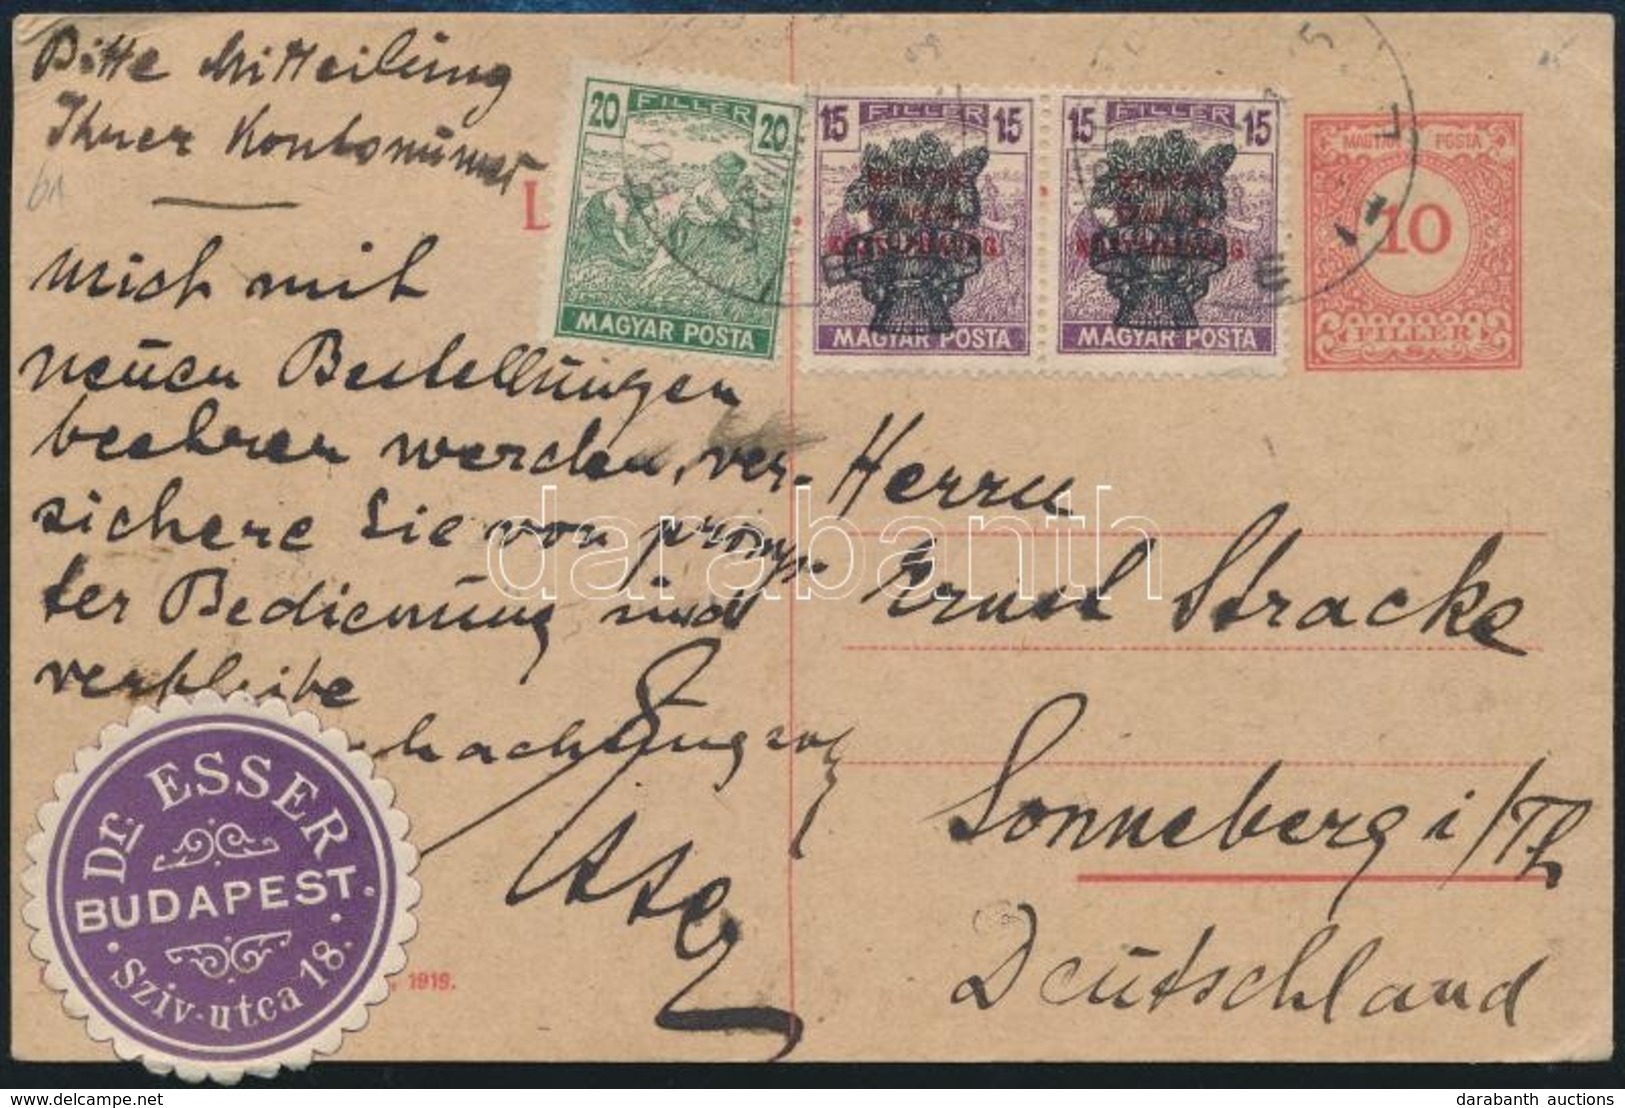 Bitte Mitteilung
Ihrer Kontonummer
mich mit
neuen Bestellungen
beehren werden, ver-
sichere Sie von promp-
ter Bedienung und
verbleibe
hachtungsvoll
Esser
20 FILLER 20
MAGYAR POSTA
15 FILLER 15
KÖZTÁRSASÁG
MAGYAR POSTA
15 FILLER 15
KÖZTÁRSASÁG
MAGYAR POSTA
MAGYAR POSTA
10
FILLER
L
Herrn
Ernst Stracke
Sonneberg i/Th
Deutschland
Dr. ESSER
BUDAPEST.
Sziv-utca 18.
1919.
darabanth
darabanth auctions